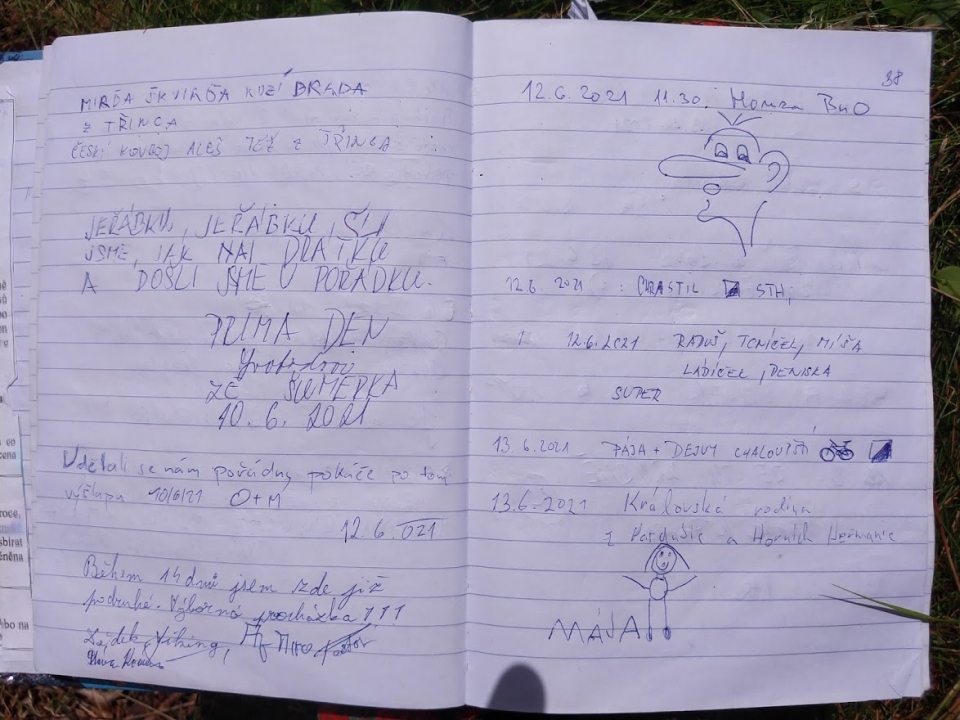 MIRĎA ŠKVIRĎA KOZÍ BRADA
Z TŘINCA
ČESKÝ ALEŠ TÉŽ Z TŘINCA
JEŘÁBKU, JEŘÁBKU, ŠLI
JSME, JAK NA DRÁTKU
A DOŠLI JSME V POŘÁDKU.
PRIMA DEN
ZE ŠUMPERKA
10.6. 2021
Udělali se nám pořádný po tom
výšlapu 10/6/21 O+M
12.6.021
Během 14 dnů jsem zde již
podruhé. Výborná procházka!!!
38
12.6.2021 11.30. Honza BnO
12.6 2021 : CHRASTIL STH,
12.6.2021 RADUŠ, TOMÍČEK, MÍŠA
LÁDÍČEK, DENISKA
SUPER
13.6.2021 PÁJA + DEJVY
13.6.2021 Královská rodina
z Pardubic a Horních Heřmanic
MÁJA